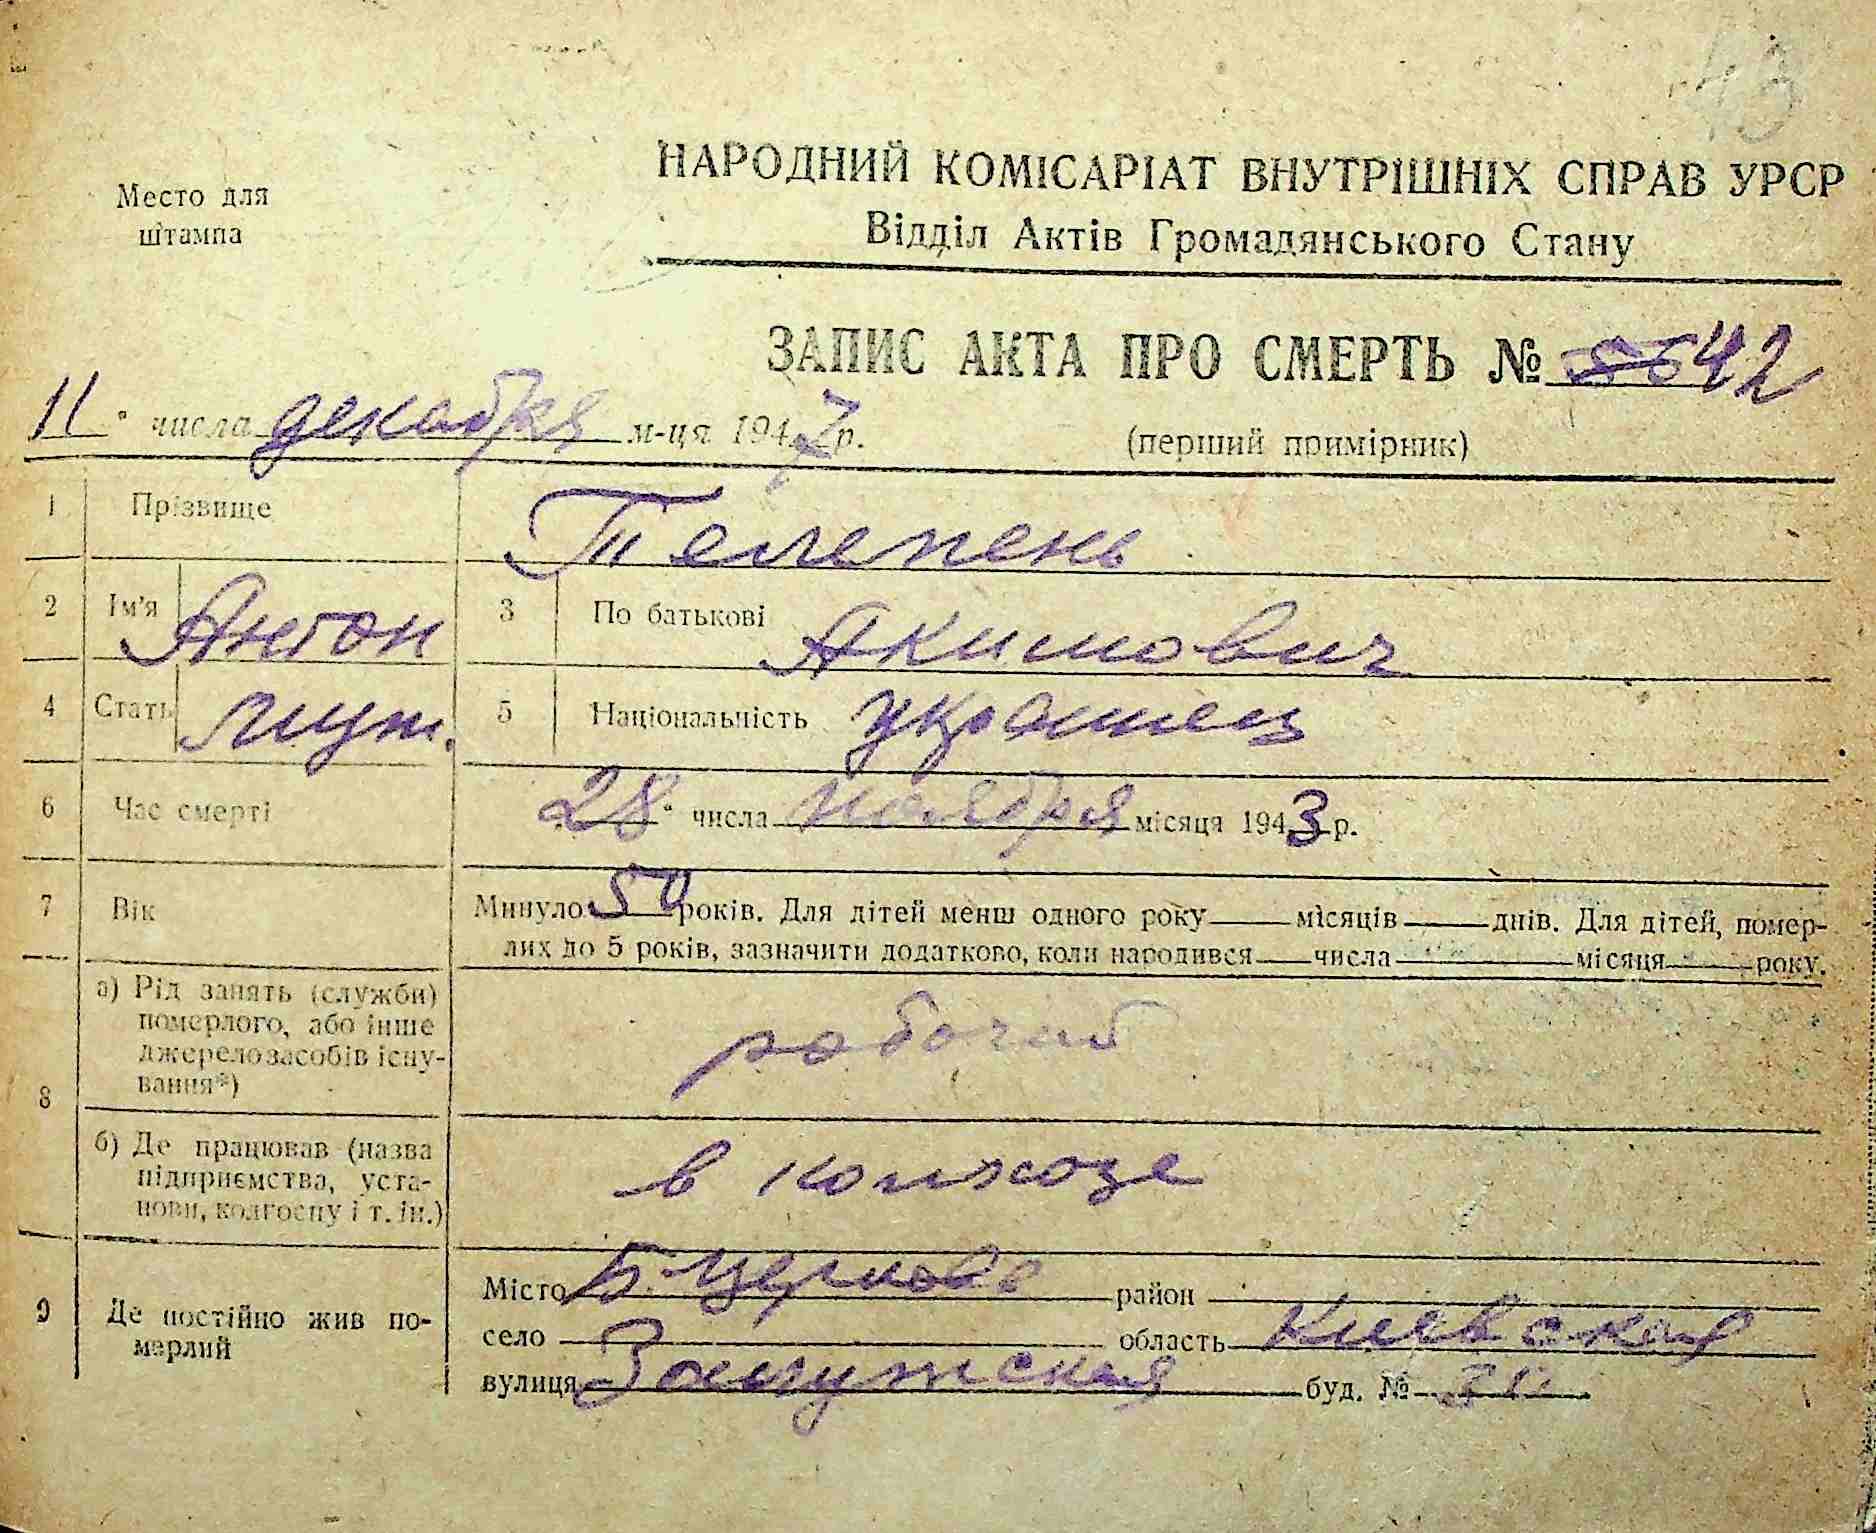 43
Место для
штампа
НАРОДНИЙ КОМІСАРІАТ ВНУТРІШНІХ СПРАВ УРСР
Відділ Актів Громадянського Стану
ЗАПИС АКТА ПРО СМЕРТЬ № 42
11 числа декабря м-ця 1947 р.
(перший примірник)
1 Прізвище Телепень
2 Ім'я Антон 3 По батькові Якимович
4 Стать муж. 5 Національність украинец
6 Час смерті 28 числа ноября місяця 1943 р.
7 Вік Минуло 50 років. Для дітей менш одного року місяців днів. Для дітей, помер-
лих до 5 років, зазначити додатково, коли народився числа місяця року.
8 а) Рід занять (служби)
померлого, або інше
джерело засобів існу-
вання*) рабочий
б) Де працював (назва
підприємства, уста-
нови, колгоспу і т. ін.) в колхозе
9 Де постійно жив по-
мерлий
Місто Б. Церковь район
село область Киевская
вулиця буд. №